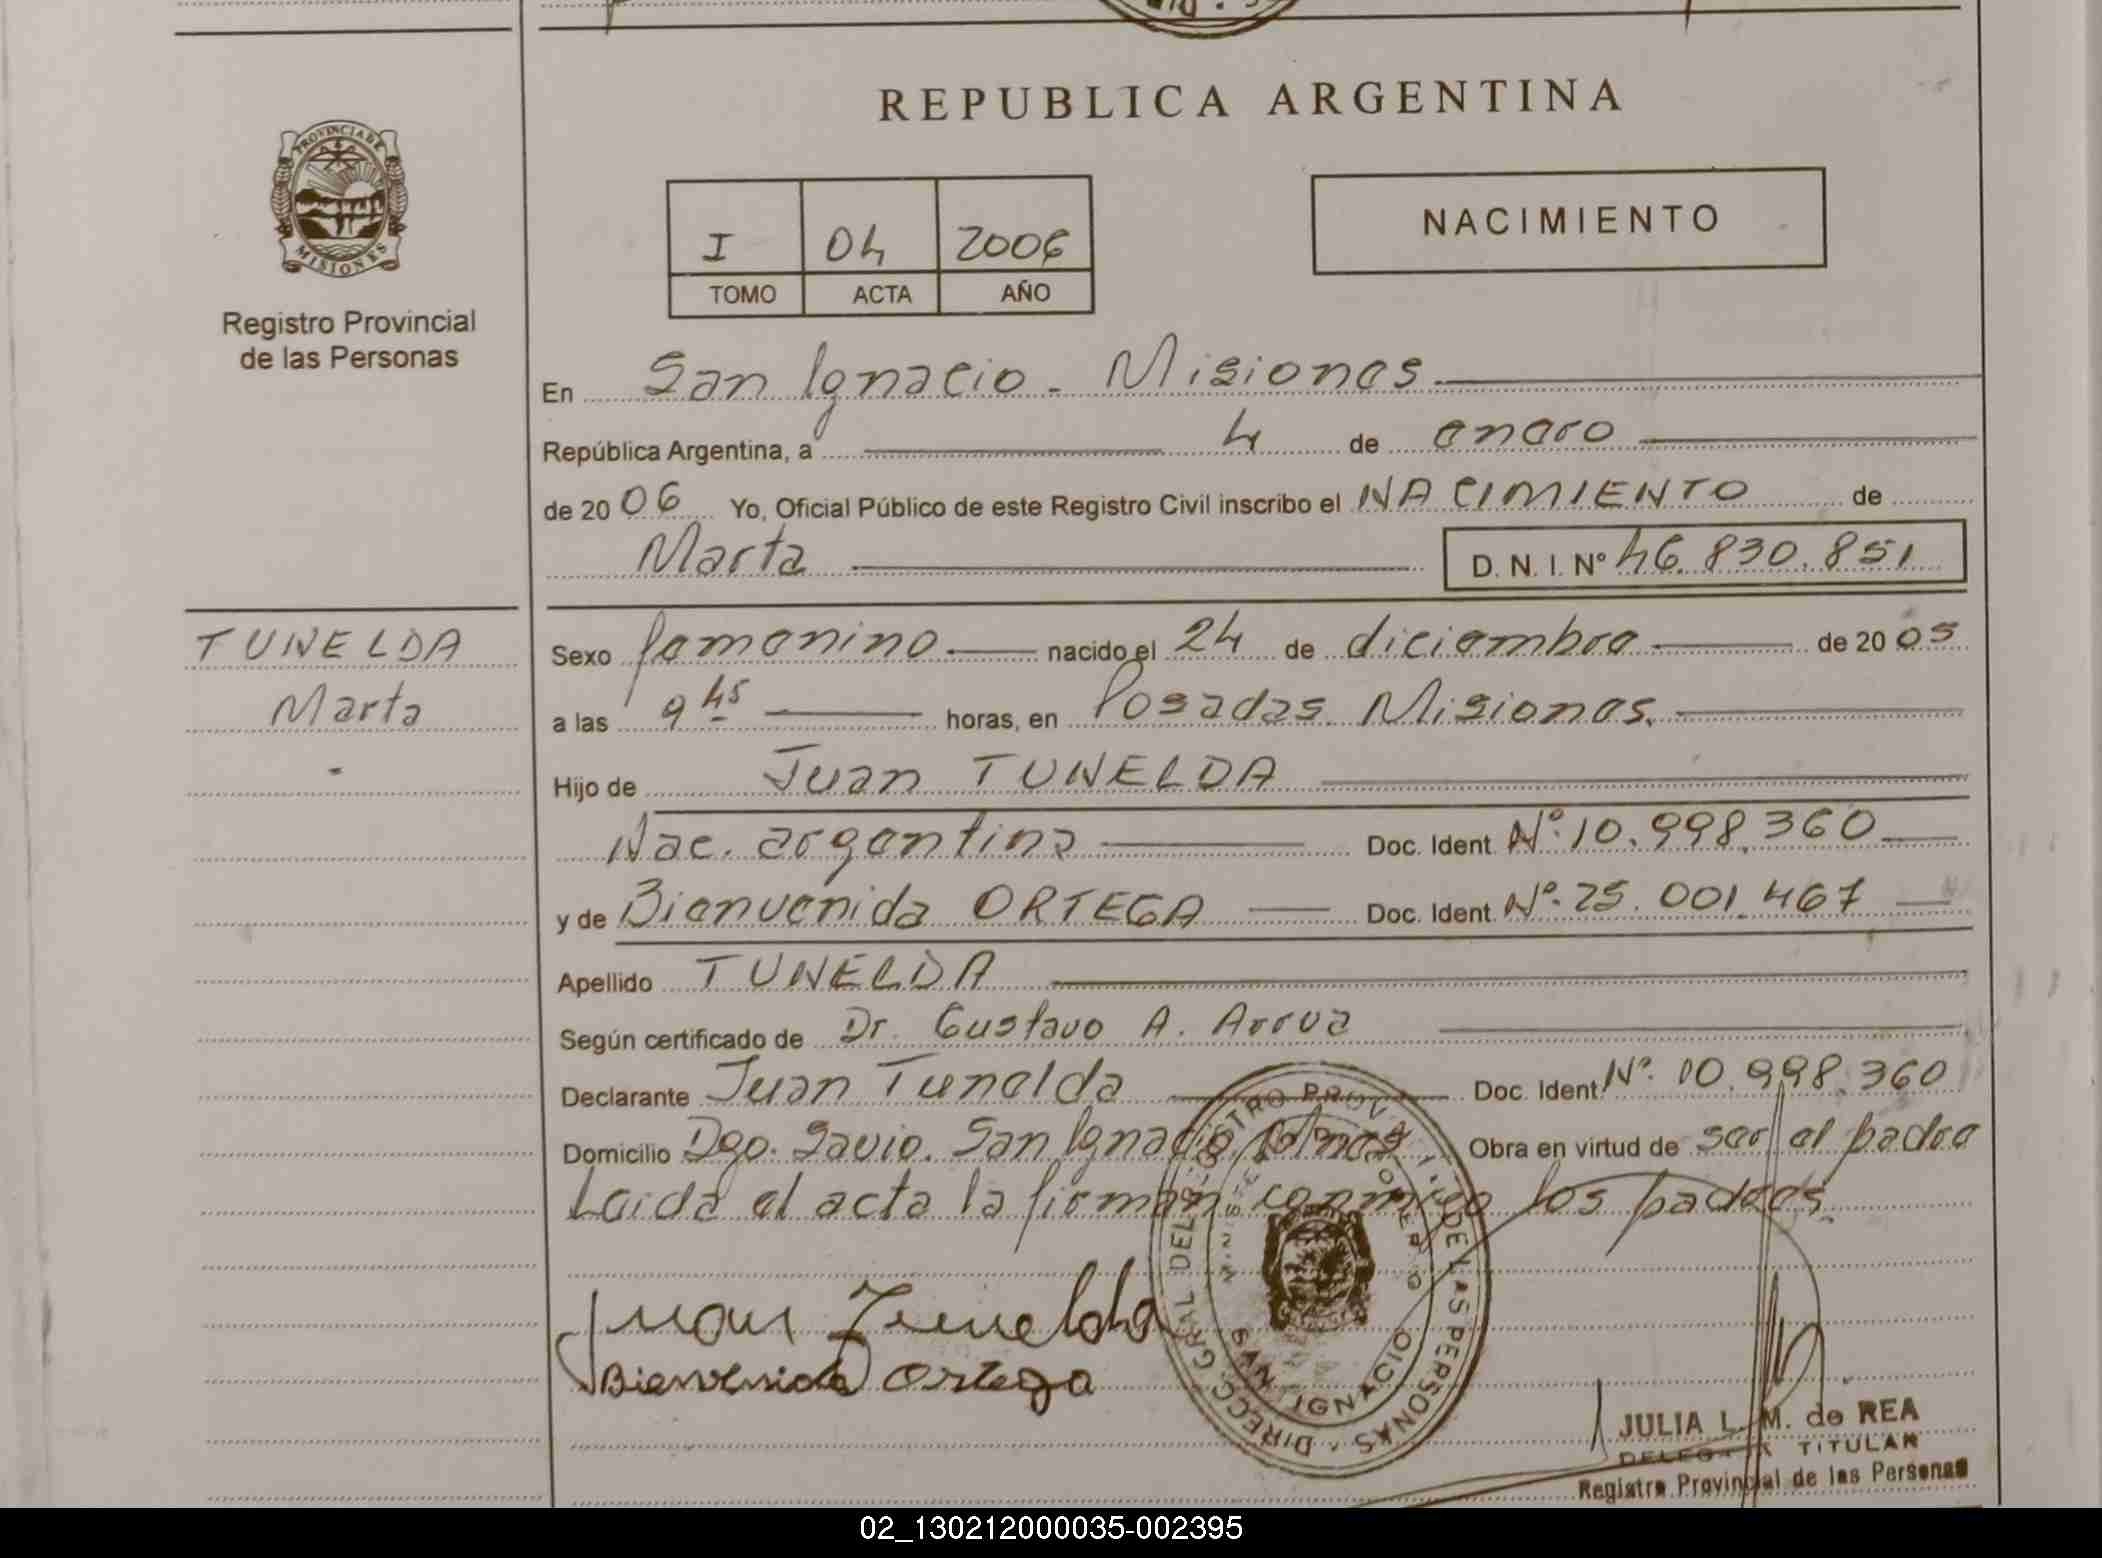 REPUBLICA ARGENTINA
PROVINCIA DE
MISIONES
Registro Provincial
de las Personas
I 04 2006
TOMO ACTA AÑO
NACIMIENTO
En San Ignacio - Misiones
República Argentina, a 4 de enero
de 2006 Yo, Oficial Público de este Registro Civil inscribo el NACIMIENTO de
Marta D. N. I. Nº 46.830.851
TUNELDA
Marta
-
Sexo femenino nacido el 24 de diciembre de 2005
a las 9 hs horas, en Posadas. Misiones.
Hijo de Juan TUNELDA
Nac. argentina Doc. Ident. Nº. 10.998.360
y de Bienvenida ORTEGA Doc. Ident. Nº. 25.001.467
Apellido TUNELDA
Según certificado de Dr. Gustavo A. Arrua
Declarante Juan Tunelda Doc. Ident. Nº. 10.998.360
Domicilio Dgo. Savio. San Ignacio Obra en virtud de ser el padre
Leida el acta la firman conmigo los padres.
Juan Tunelda
Bienvenida Ortega
DIRECC. GRAL DEL REGISTRO PROVINCIAL DE LAS PERSONAS
SAN IGNACIO
JULIA L. M. de REA
DELEGADA TITULAR
Registro Provincial de las Personas
02_130212000035-002395